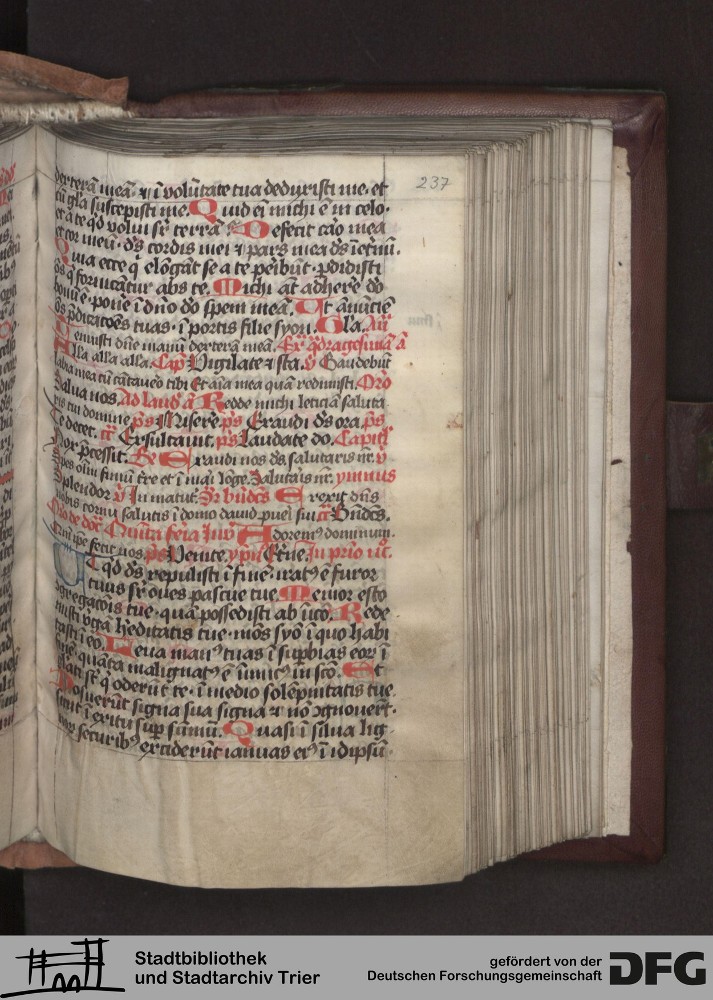 237
dexterā meā. ⁊ ī volūtate tua deduxisti me. et
cū glīa suscepisti me. Quid eī michi ē in celo.
et a te qd volui sr̄ terrā. Defecit caro mea
et cor meū. ds̄ cordis mei ⁊ pars mea ds̄ ī etnū.
Quia ecce q̄ elōgāt se a te peribūt. pdidisti
oēs q̄ fornicātur abs te. Michi āt adhere do
bonū ē. pone ī dn̄o do spem meā. Ut anūtiē
oēs pdicatōēs tuas. ī portis filie syon. Glīa.
Tenuisti dn̄e manū dexterā meā.
Alla alla alla. Cap Vigilate ⁊ sta. Gaudebūt
labia mea cū cātavero tibi Et aīa mea quā redimisti. Oro
Salua nos. Ad laud Redde michi leticiā saluta
ris tui domine ps Misere. ps Exaudi ds̄ ora. ps
Te decet. Exsultauit. ps Laudate do. Capitl
Nox pcessit. Exaudi nos ds̄ salutaris nr̄.
Spes oīm finiū tr̄e et ī mari lōge. Salutaris nr̄. ymnus
Splendor In matut. Sr bn̄dcs Erexit dn̄s
nobis cornu salutis ī domo dauid pueri sui Bn̄dcs.
Quīta feīa Inv Adorem dominum.
Qm̄ ipe fecit nos. ps Venite. ypn̄ Ecce. In prio nc.
Ut qd ds̄ repulisti ī finē. iratꝰ ē furor
tuus sr̄ oues pascue tue. Memor esto
ꝯgregacōis tue. quā possedisti ab īico. Rede
misti virgā hēditatis tue. mōs syō ī quo habi
tasti ī eo. Leua manꝰ tuas ī supbias eoꝝ ī
finē. quāta malignatꝰ ē īimicꝰ in scō. Et
gliati st̄ q̄ oderūt te. ī medio solēpnitatis tue
Posuerūt signa sua signa ⁊ nō ꝯgnouerūt.
sicut ī exitu sup sūmū. Quasi ī silua lig-
noꝝ securibꝰ exciderūt ianuas eiꝰ ī idipsū.
Stadtbibliothek
und Stadtarchiv Trier
gefördert von der
Deutschen Forschungsgemeinschaft
DFG